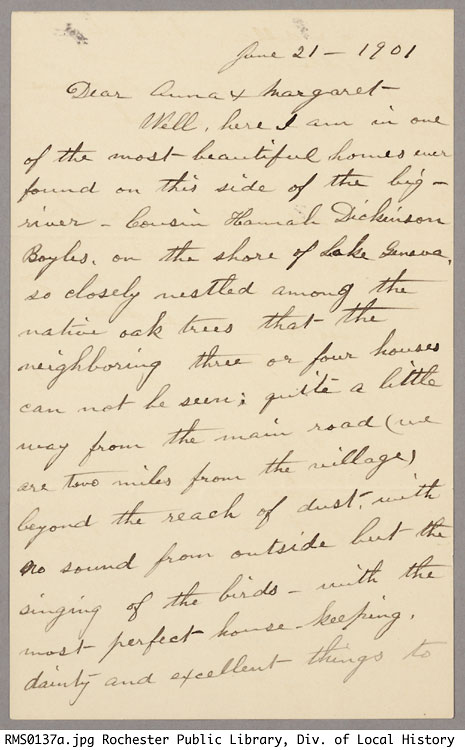 June 21 - 1901
Dear Anna & Margaret
Well, here I am in one
of the most beautiful homes ever
found on this side of the big
river - Cousin Hannah Dickinson
Boyles, on the shore of Lake Geneva,
so closely nestled among the
native oak trees that the
neighboring three or four houses
can not be seen; quite a little
way from the main road (we
are two miles from the village)
beyond the reach of dust, with
no sound from outside but the
singing of the birds - with the
most perfect house-keeping,
dainty and excellent things to
RMS0137a.jpg Rochester Public Library, Div. of Local History